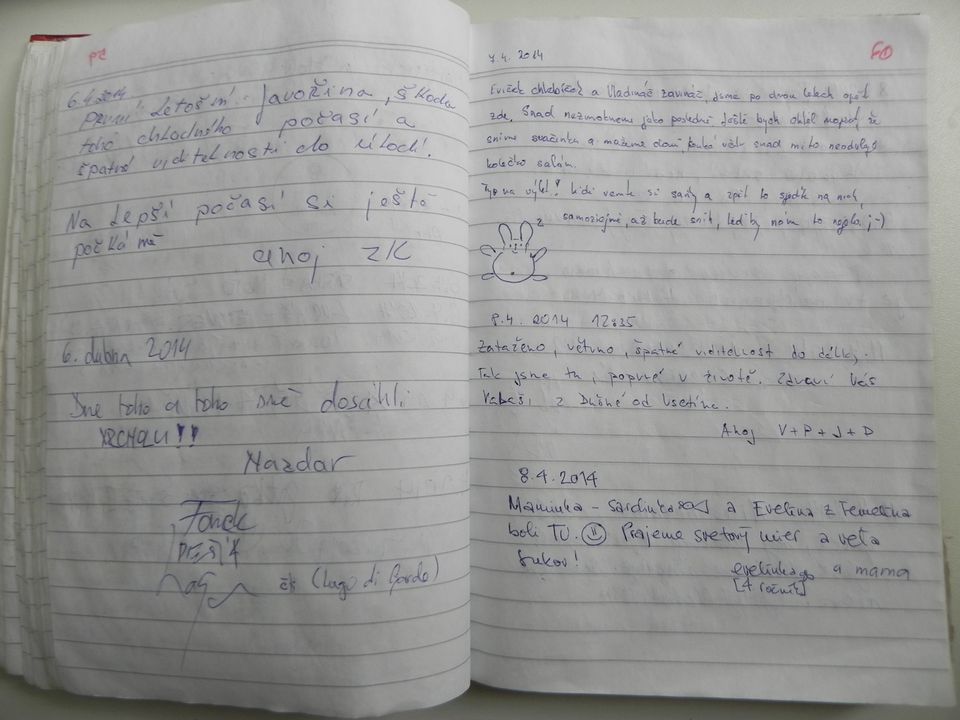 6.4.2014
První letošní Javořina, škoda
toho chladného počasí a
špatné viditelnosti do údolí.
Na lepší počasí si ještě
počkáme
ahoj ZK
6. dubna 2014
Dne toho a toho sme dosáhli
VRCHOLU!!
Nazdar
(Lago di Garda)
7.4. 2014
a Vladináč zavináč, jsme po dvou letech opět
zde, Snad nezmokneme jako posledně. Ještě bych chtěl napsat, že
sníme svačinku a mažeme domů, snad mi to neodulají
kolečko salám.
Typ na výlet! Lidi vemte si saňky a zpět to spusťte na nich,
samozřejmě, až bude sníh, teď by vám to nejelo ;-)
z
8.4. 2014 12:35
Zataženo, větrno, špatná viditelnost do dálky.
Tak jsme tu, poprvé v životě. Zdraví Vás
z od Vsetína.
Ahoj V+P+J+D
8.4.2014
Maminka - a Evelina z Temelína
boli TU. Prajeme svetový mier a veľa
evelinka a mama
[4 ročník]